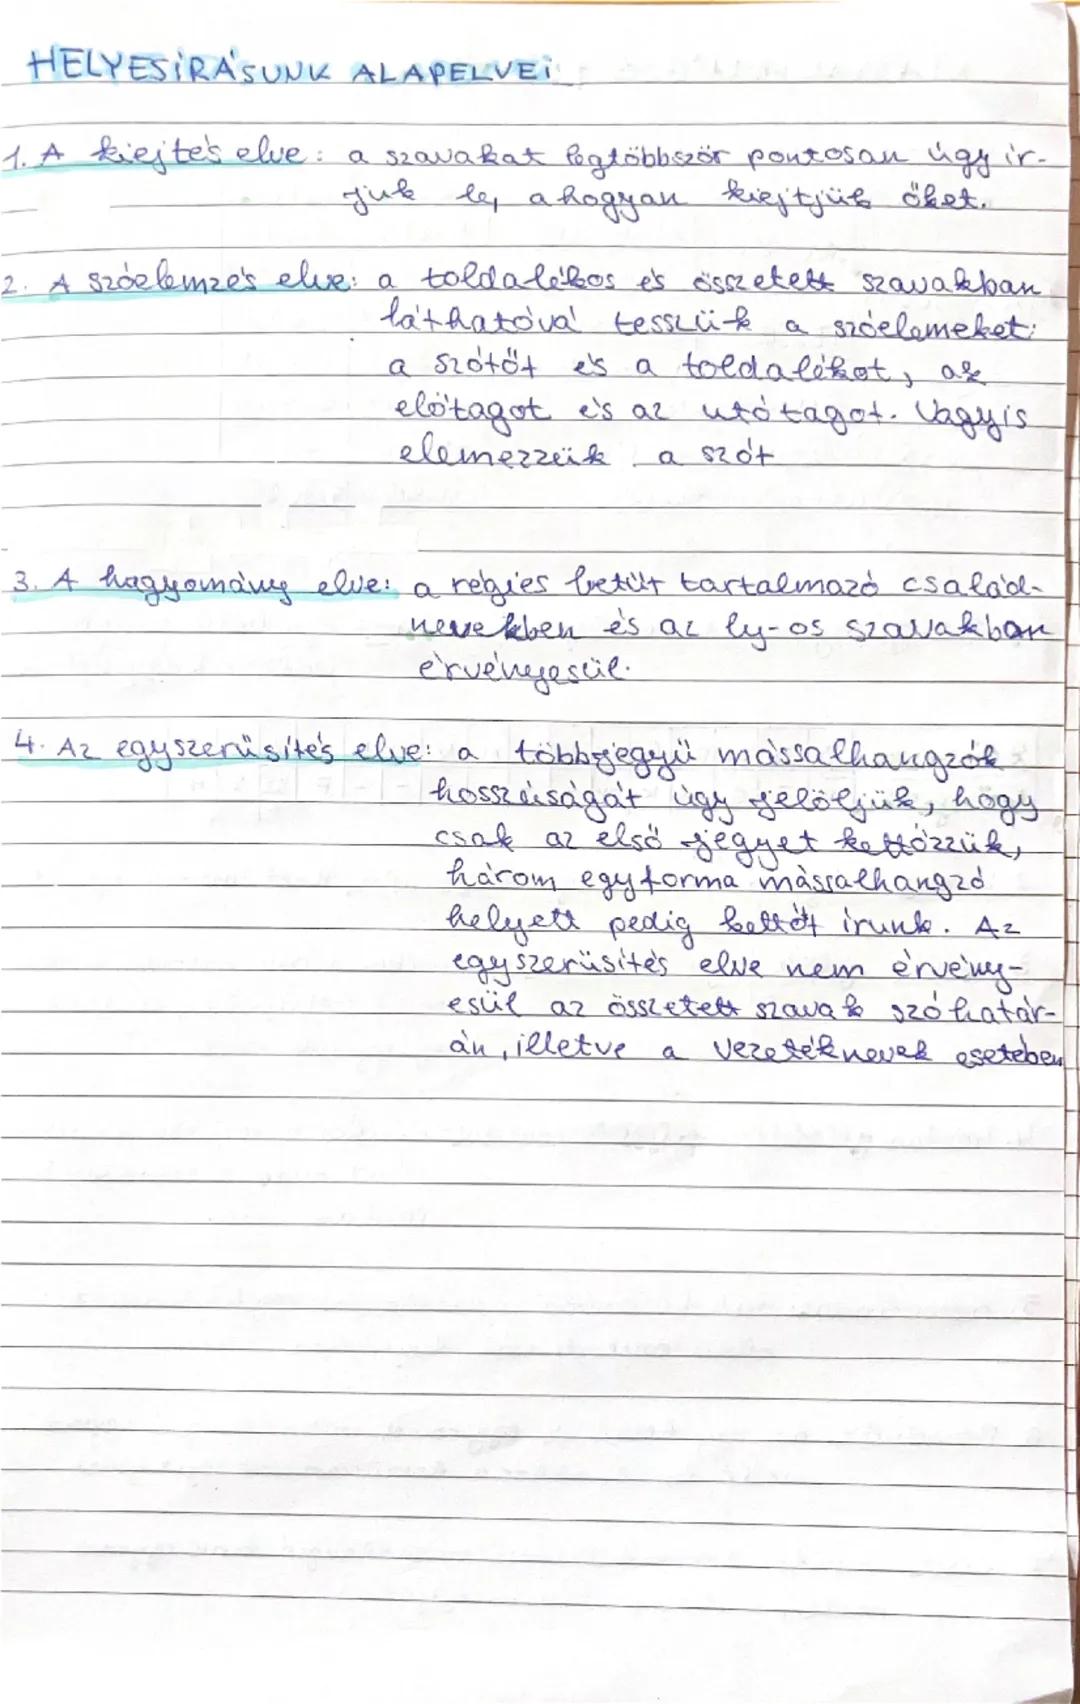 HELYESÍRÁSUNK ALAPELVEI
1. A kiejtés elve: a szavakat legtöbbször pontosan úgy ír-
juk le, ahogyan kiejtjük őket.
2. A szóelemzés elve: a toldalékos és összetett szavakban
láthatóvá tesszük a szóelemeket:
a szótőt és a toldalékot, az
előtagot és az utótagot. Vagyis
elemezzük a szót
3. A hagyomány elve: a régies betűt tartalmazó család-
nevekben és az ly-os szavakban
érvényesül.
4. Az egyszerűsítés elve: a többjegyű mássalhangzók
hosszúságát úgy jelöljük, hogy
csak az első jegyet kettőzzük,
három egyforma mássalhangzó
helyett pedig kettőt írunk. Az
egyszerűsítés elve nem érvény-
esül az összetett szavak szóhatár-
án, illetve a vezetéknevek eseteben